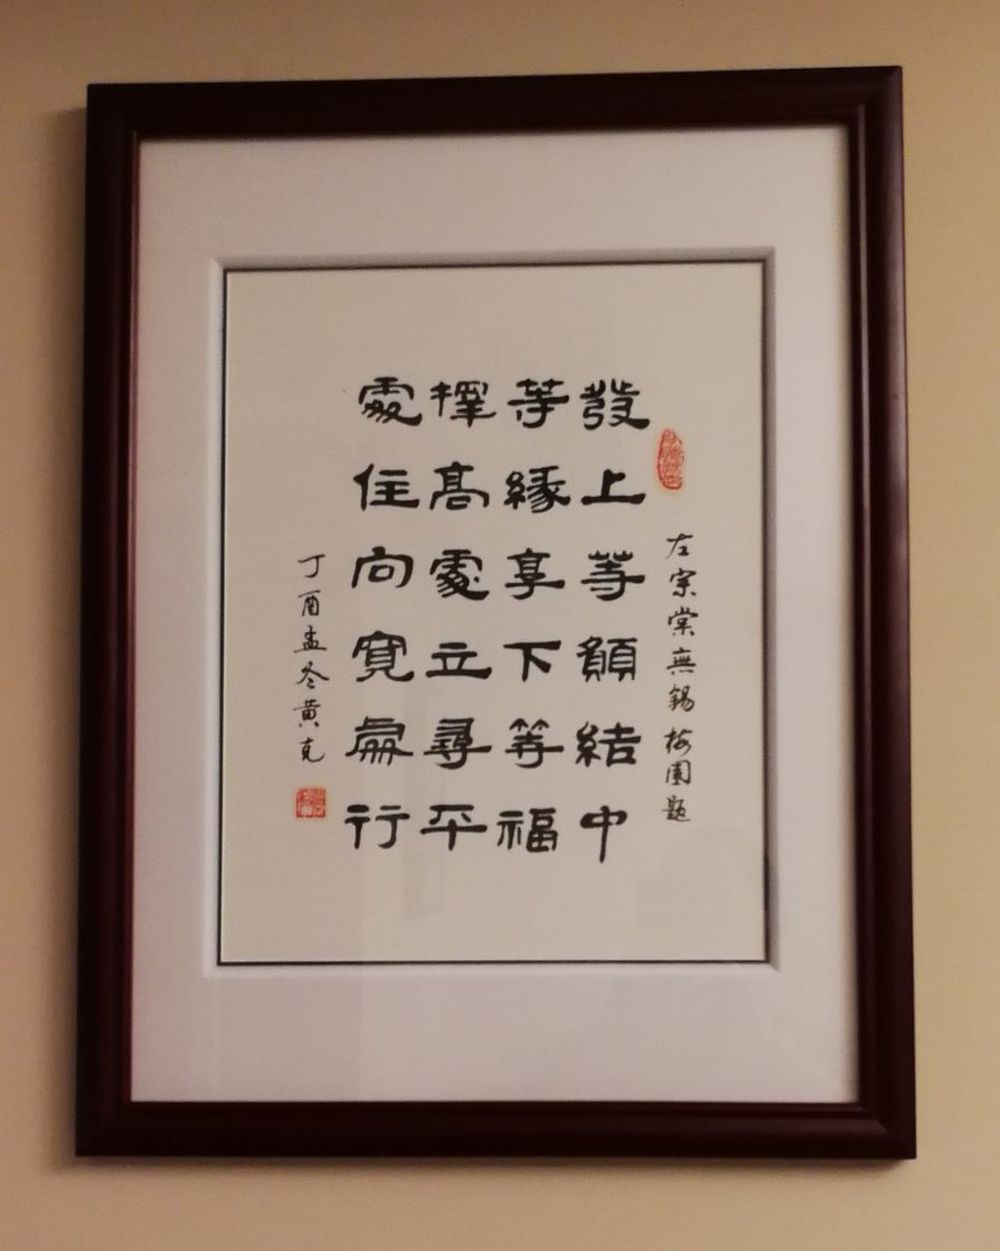 左宗棠無錫梅園題
發上等願結中
等緣享下等福
擇高處立尋平
處住向寬處行
丁酉孟冬黃克